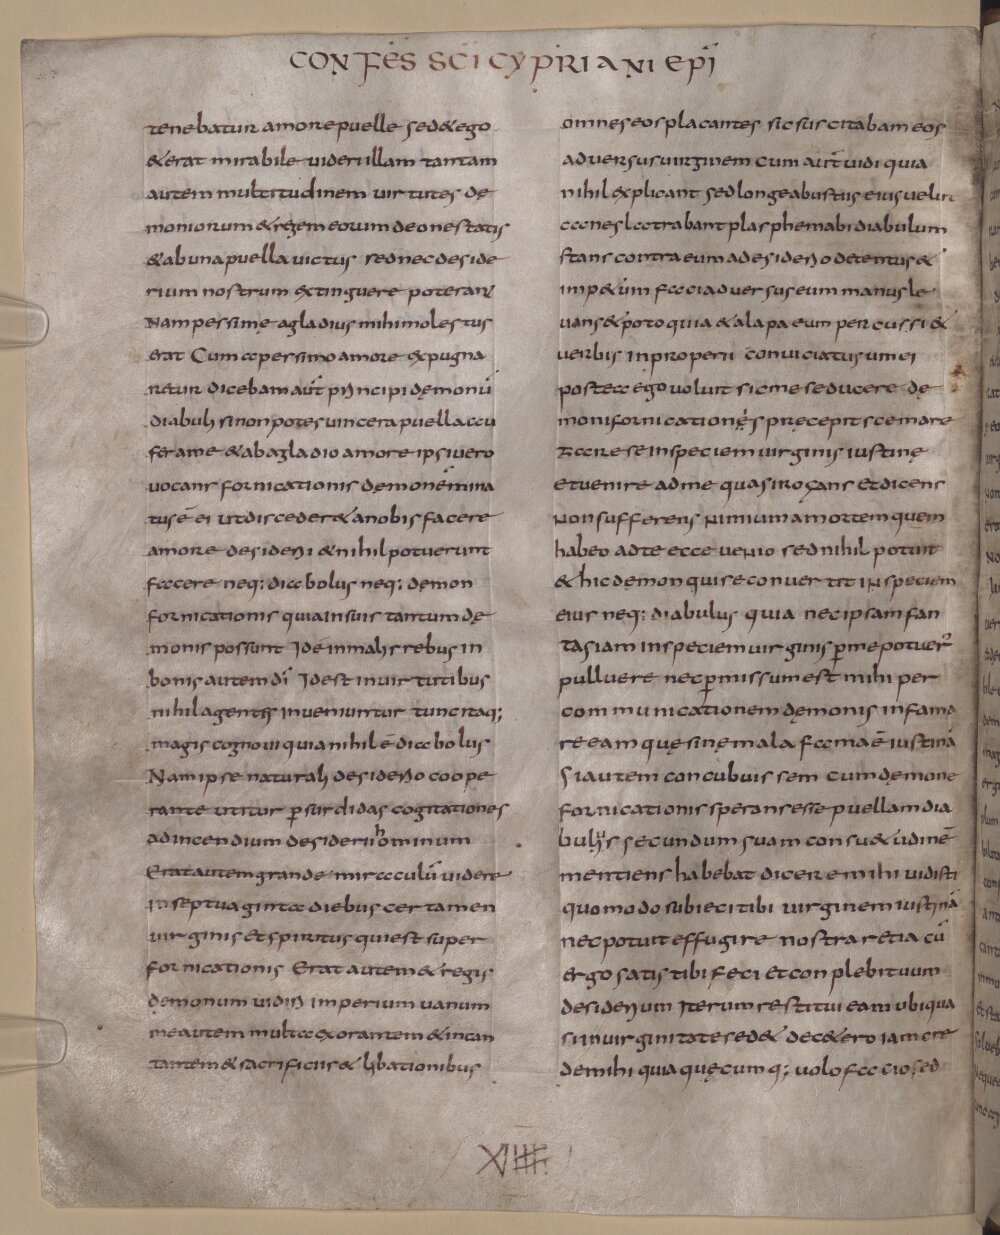 CONFES SCI CYPRIANI EPI
tenebatur amore puelle sed & ego
& erat mirabile uideri illam tantam
autem multitudinem uirtutes de
moniorum & regem eorum deonestatis
& ab una puella uictus sed nec deside
rium nostrum extinguere poterant
Nam pessime agladius mihi molestus
erat Cum a pessimo amore expugna
retur dicebam aut principi demonu
diabuli si non potes uincera puella accu
fera me & abagladio amore ipsi uero
uocans fornicationis demonem ina
tus e ei ut disceder& a nobis facere
amore desiderii & nihil potuerunt
facere neq; diabolus neq; demon
fornicationis quia in suis tantum de
monis possunt Ide in malis rebus in
bonis autem di Idest in uirtutibus
nihil agentes inueniuntur tunc itaq;
magis cognoui quia nihil e diabolus
Nam ipse naturali desiderio coope
rante utitur p surdidas cogitationes
ad incendium desiderii hominum
Erat autem grande miraculu uidere
in septuaginta diebus certamen
uirginis et spiritus qui est super
fornicationis Erat autem & regis
demonum uidiri imperium uanum
me autem multa exorantem & incan
tantem & sacrificiis & libationibus
omnes eos placantes sic suscitabam eos
aduersus uirginem cum aut uidi quia
nihil explicant sed longe abustus eius uelut
canes latrabant plasphemabi diabulum
stans contra eum a desiderio detentus &
imp&um faci aduersus eum manus le
uans & poto quia & alapa eum percussi &
uerbis inproperii conuiciatus um ei
postea ego uoluit sic me seducere de
moni fornicationes precepit se mare
tare se in speciem uirginis iustine
et uenire ad me quasi rogans et dicens
Non sufferens nimium amortem quem
habeo ad te ecce uenio sed nihil potuit
& hic demon qui se conuertit in speciem
eius neq; diabulus quia nec ipsam fan
tasiam in speciem uirginis p me potuer
pulluere nec pmissum est mihi per
communicationem demonis infama
re eam que sine mala fama e iustina
Si autem concubuissem cum demone
fornicationis sperans esse puellam dia
bulus secundum suam consu&udine
mentiens habebat dicere mihi uidisti
quomodo subieci tibi uirginem iustina
nec potuit effugire nostra retia cu
ergo satis tibi feci et conplebi tuum
desiderium Iterum restitui eam ubi qua
si in uirginitate sed & dec&ero iam cre
de mihi quia quecumq; uolo facio sed